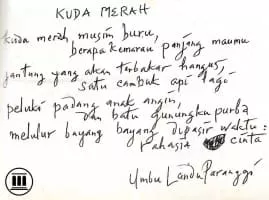 KUDA MERAH
kuda merah, musim buru,
berapa kemarau panjang maumu
jantung yang akan terbakar hangus,
satu cambuk api lagi
peluki padang anak angin,
dan batu gunungku purba
melulur bayang bayang dipasir waktu:
rahasia cinta
Umbu Landu Paranggi